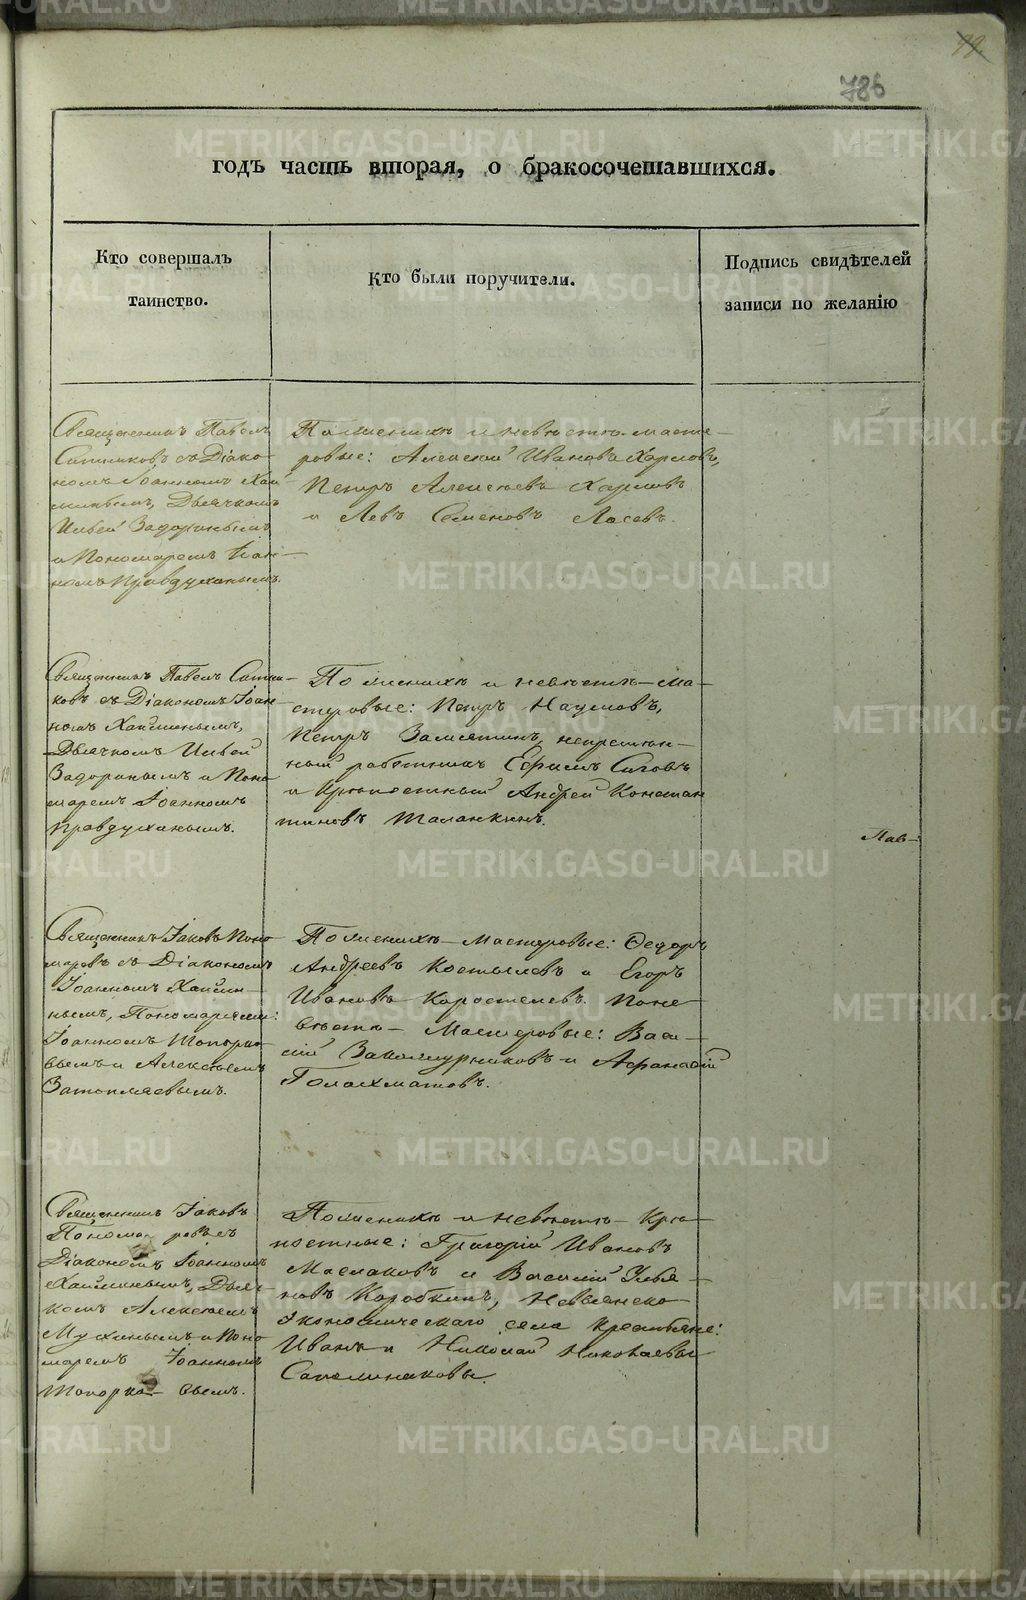 99.
786
годъ часть вторая, о бракосочетавшихся.
Кто совершалъ
таинство.
Кто были поручители.
Подпись свидѣтелей
записи по желанію
Священникъ Павелъ
Ситниковъ съ Діако-
номъ Іоанномъ
Дьячкомъ
Задоринымъ
и Пономаремъ Іоан-
номъ Правдухинымъ.
По женихѣ и невѣстѣ масте-
ровые: Алексей Ивановъ Харловъ,
Петръ Алексѣевъ Харловъ
и Левъ Семеновъ Лосевъ.
Священникъ Павелъ Ситни-
ковъ съ Діакономъ Іоан-
номъ
Дьячкомъ
Задоринымъ и Поно
маремъ Іоанномъ
Правдухинымъ.
По женихѣ и невѣстѣ – ма-
стеровые: Петръ Наумовъ,
Петръ Замятинъ, непремѣн-
ный работникъ Ефимъ Сиговъ
и крѣпостный Андрей Констан
тиновъ Таланкинъ.
Пав-
Священникъ Іаковъ Поно
маревъ съ Діакономъ
Іоанномъ
Пономарями:
Іоанномъ Топорко-
вымъ и Алексѣемъ
Затопляевымъ.
По женихѣ – Мастеровые: Ѳедоръ
Андреевъ Костылевъ и Егоръ
Ивановъ Коростелевъ. По не
вѣстѣ – Мастеровые: Васи-
лій и Афанасій
Голохматовъ.
Священникъ Іаковъ
Пономаревъ съ
Діакономъ Іоанномъ
Дьяч-
комъ Алексѣемъ
Мухинымъ и Поно
маремъ Іоанномъ
Топорко- вымъ.
По женихѣ и невѣстѣ – Крѣ-
постные: Григорій Ивановъ
Маслаковъ и Василій Улья-
новъ Коробкинъ, Невьянско
экономическаго села крестьяне:
Иванъ и Николай Николаевы
Сапожниковы.
METRIKI.GASO-URAL.RU